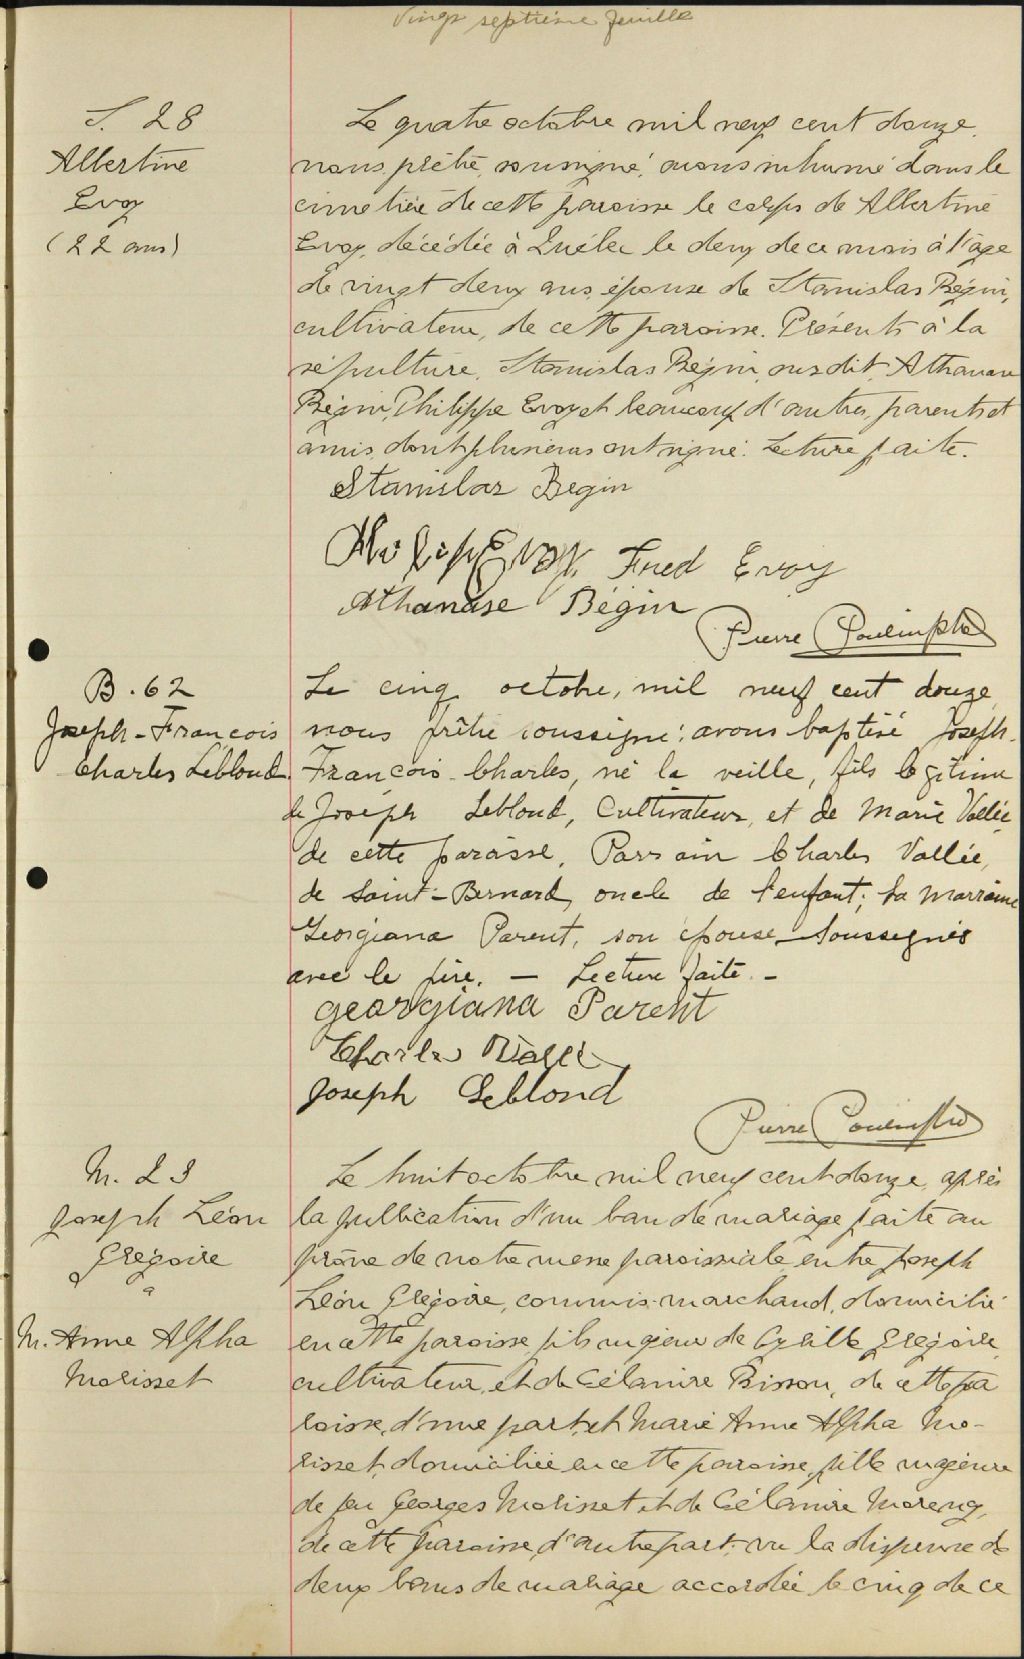 Vingt septième feuille
S. 28
Albertine
Evoy
(22 ans)
Le quatre octobre mil neuf cent douze,
nous, prêtre, soussigné, avons inhumé dans le
cimetière de cette paroisse le corps de Albertine
Evoy, décédée à Québec le deux de ce mois à l'âge
de vingt deux ans, épouse de Stanislas Bégin,
cultivateur, de cette paroisse. Présents à la
sépulture, Stanislas Bégin, susdit, Athanase
Bégin, Philippe Evoy et beaucoup d'autres, parents et
amis, dont plusieurs ont signé. Lecture faite.
Stanislas Begin
Evoy Fred Evoy
Athanase Bégin
Pierre Poulin ptre
B. 62
Joseph-François
Charles Leblond
Le cinq octobre, mil neuf cent douze,
nous prêtre soussigné, avons baptisé Joseph-
François-Charles, né la veille, fils légitime
de Joseph Leblond, Cultivateur, et de Marie Vallée,
de cette paroisse. Parrain Charles Vallée,
de Saint-Bernard, oncle de l'enfant; La Marraine
Georgiana Parent, son épouse, Soussignés
avec le père. — Lecture faite. —
Georgiana Parent
Charles Vallé
Joseph Leblond
Pierre Poulin ptre
M. 23
Joseph Léon
Grégoire
&
M. Anne Alpha
Morisset
Le huit octobre mil neuf cent douze, après
la publication d'un ban de mariage faite au
prône de notre messe paroissiale entre Joseph
Léon Grégoire, commis-marchand, domicilié
en cette paroisse, fils majeur de Cyrille Grégoire,
cultivateur, et de Célanire Bisson, de cette pa
roisse, d'une part, et Marie Anne Alpha Mo-
risset, domiciliée en cette paroisse, fille majeure
de feu Georges Morisset et de Célanire Morency,
de cette paroisse, d'autre part; vu la dispense de
deux bans de mariage accordée le cinq de ce